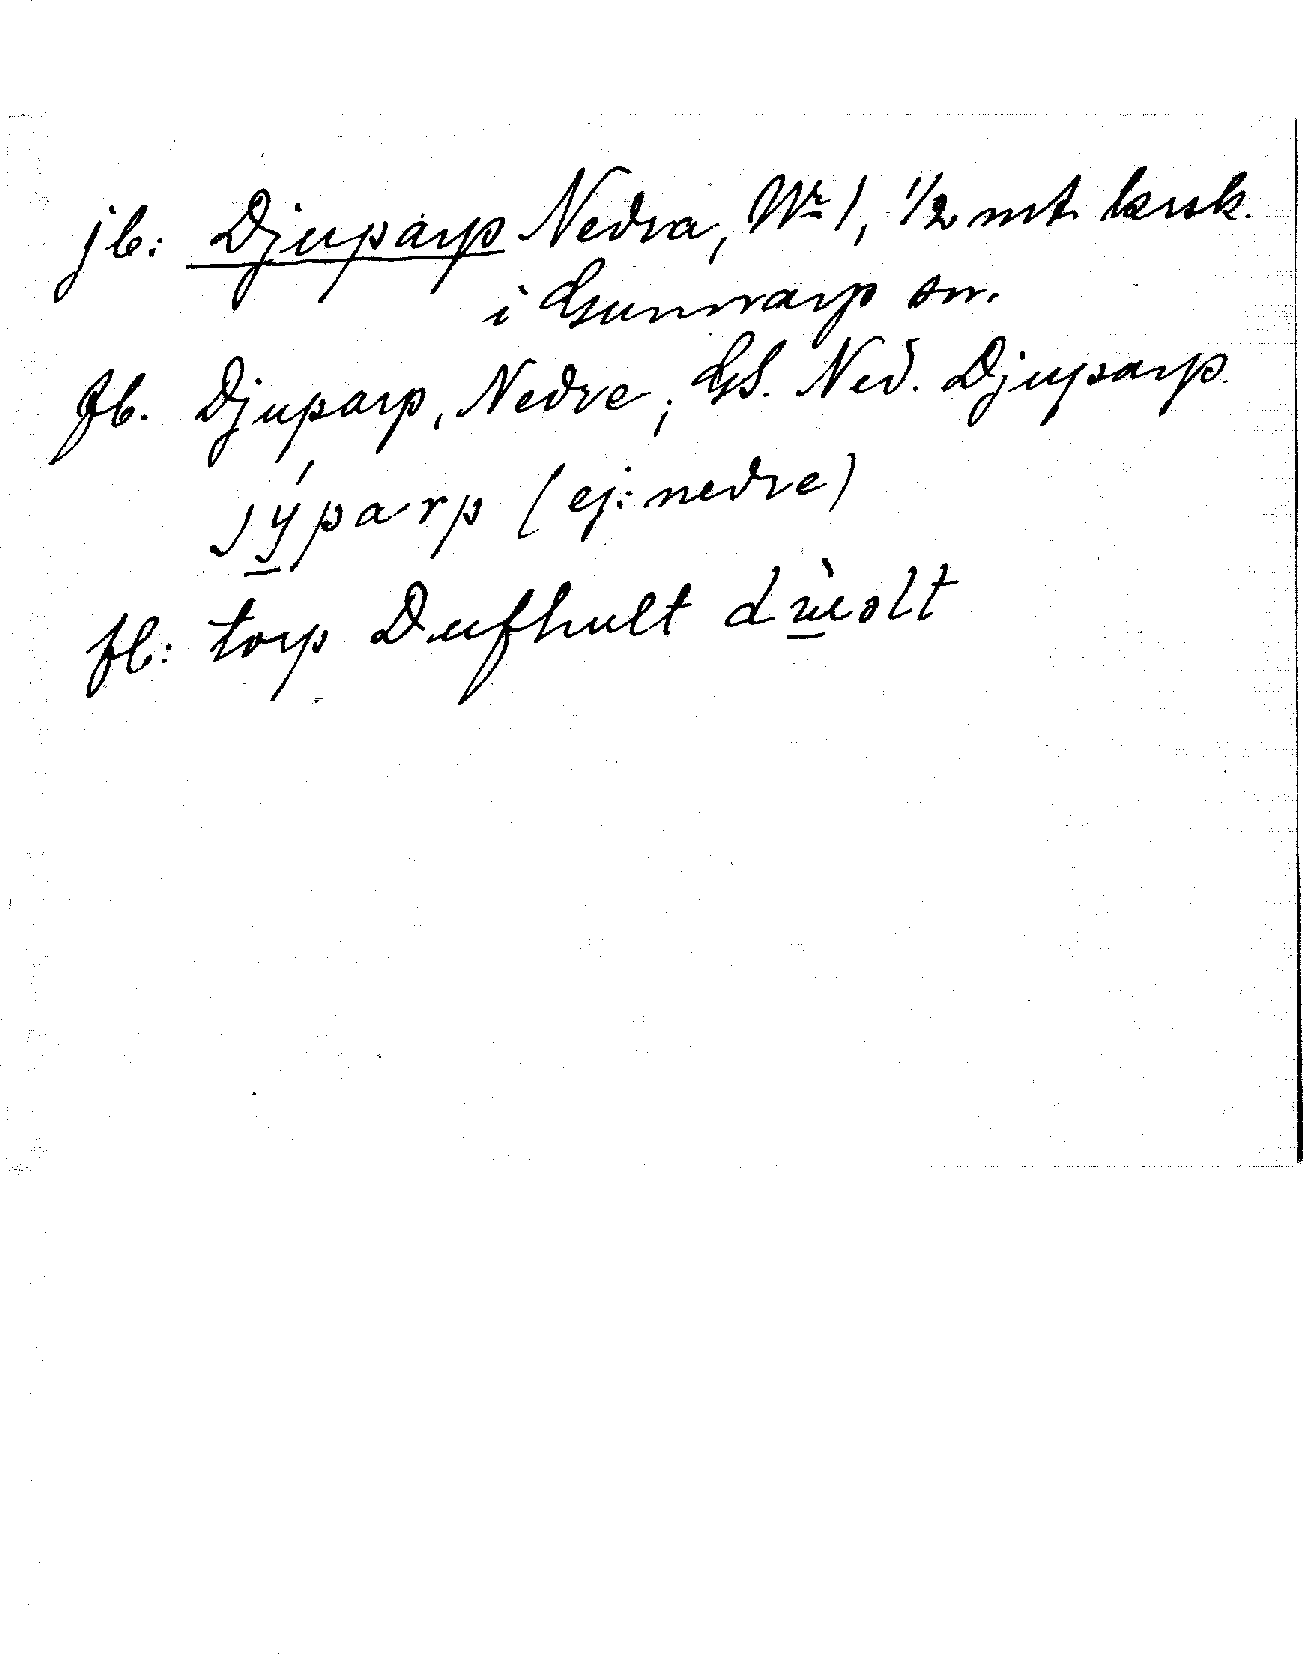 jb: Djuparp Nedra, Nr 1, 1/2 mt krsk.
i Gunnarp sn.
fb. Djuparp, Nedre; GS. Ned. Djuparp.
jý̲parp (ej: nedre)
fb: torp Dufhult dù̲olt